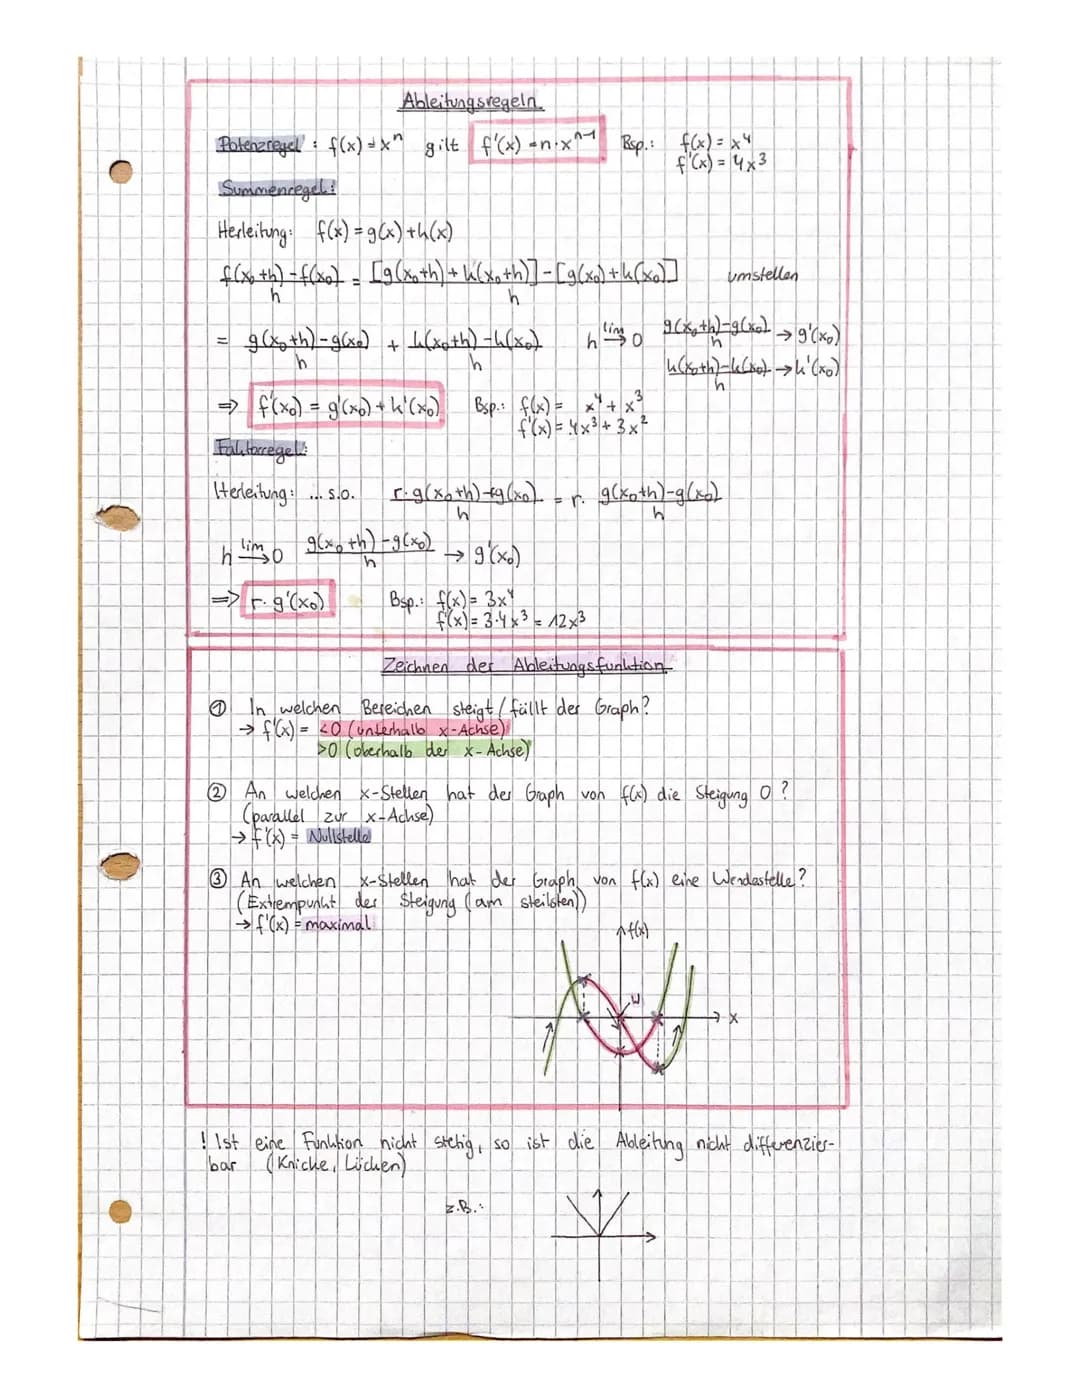 Ableitungsregeln
Potenzregel : f(x) = xⁿ gilt f'(x) = n·xⁿ⁻¹ Bsp.: f(x) = x⁴
f'(x) = 4x³
Summenregel:
Herleitung: f(x) = g(x) + h(x)
f(x₀+h) - f(x₀) / h = [g(x₀+h) + h(x₀+h)] - [g(x₀) + h(x₀)] / h umstellen
= g(x₀+h) - g(x₀) / h + h(x₀+h) - h(x₀) / h lim h→0 g(x₀+h) - g(x₀) / h → g'(x₀)
h(x₀+h) - h(x₀) / h → h'(x₀)
⇒ f'(x₀) = g'(x₀) + h'(x₀) Bsp.: f(x) = x⁴ + x³
f'(x) = 4x³ + 3x²
Faktorregel:
Herleitung: ... s.o. r·g(x₀+h) - rg(x₀) / h = r· g(x₀+h) - g(x₀) / h
lim h→0 g(x₀+h) - g(x₀) / h → g'(x₀)
⇒ r·g'(x₀) Bsp.: f(x) = 3x⁴
f'(x) = 3·4x³ = 12x³
Zeichnen der Ableitungsfunktion
① In welchen Bereichen steigt / fällt der Graph?
→ f'(x) = <0 (unterhalb x-Achse)
>0 (oberhalb der x-Achse)
② An welchen x-Stellen hat der Graph von f(x) die Steigung 0 ?
(parallel zur x-Achse)
→ f'(x) = Nullstelle
③ An welchen x-Stellen hat der Graph von f(x) eine Wendestelle?
(Extrempunkt der Steigung (am steilsten))
→ f'(x) = maximal
f(x)
W
x
! Ist eine Funktion nicht stetig, so ist die Ableitung nicht differenzier-
bar (Knicke, Lücken)
z.B.: